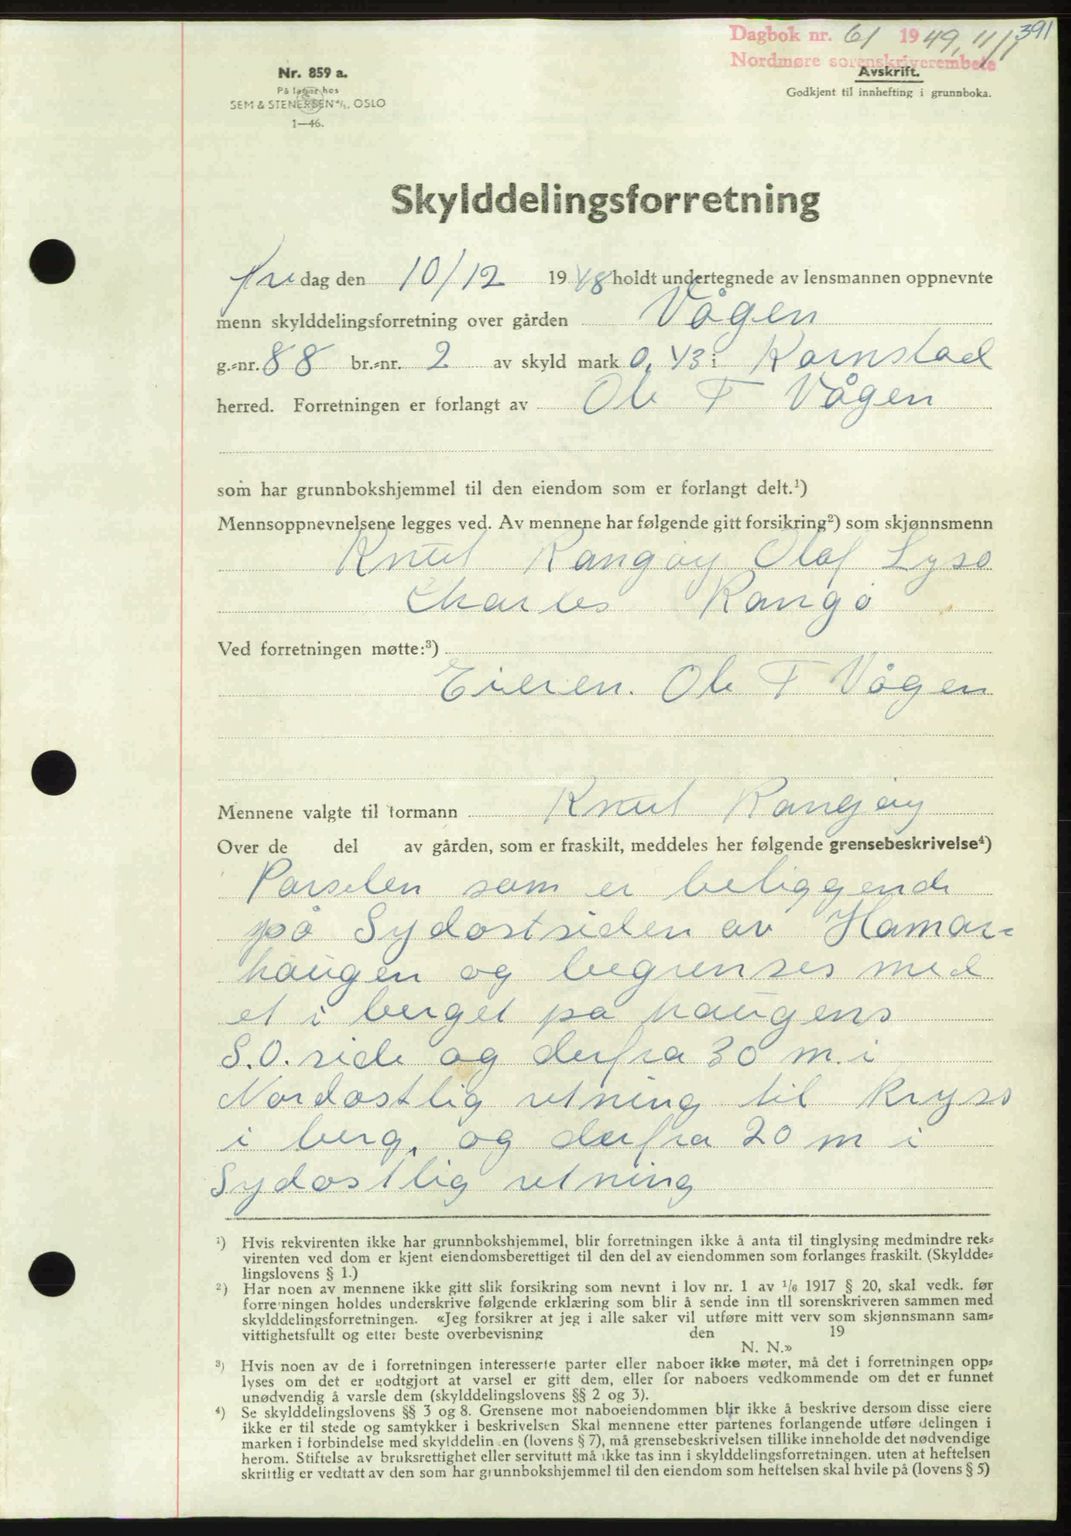 391
Dagbok nr. 61 1949, 11/1
Nordmøre sorenskriverembete
Nr. 859 a.
På lager hos
SEM & STENERSEN A/S, OSLO
1—46.
Avskrift.
Godkjent til innhefting i grunnboka.
Skylddelingsforretning
Fredag den 10/12 1948 holdt undertegnede av lensmannen oppnevnte
menn skylddelingsforretning over gården Vågen
g.-nr. 88 br.-nr. 2 av skyld mark 0,43 i Kornstad
herred. Forretningen er forlangt av Ole T Vågen
som har grunnbokshjemmel til den eiendom som er forlangt delt.¹)
Mennsoppnevnelsene legges ved. Av mennene har følgende gitt forsikring²) som skjønnsmenn
Knut Rangøy Olaf Lysø
Charles Rangø
Ved forretningen møtte:³)
Eieren. Ole T Vågen
Mennene valgte til formann Knut Rangøy
Over de del av gården, som er fraskilt, meddeles her følgende grensebeskrivelse⁴)
Parselen som er beliggende
på Sydøstsiden av Hamar-
haugen og begrenses med
et i berget på haugens
S.O. side og derfra 30 m. i
Nordøstlig retning til kryss
i berg, og derfra 20 m i
Sydøstlig retning
¹) Hvis rekvirenten ikke har grunnbokshjemmel, blir forretningen ikke å anta til tinglysing medmindre rek-
virenten ved dom er kjent eiendomsberettiget til den del av eiendommen som forlanges fraskilt. (Skyldde-
lingslovens § 1.)
²) Har noen av mennene ikke gitt slik forsikring som nevnt i lov nr. 1 av 1/6 1917 § 20, skal vedk. før
forretningen holdes underskrive følgende erklæring som blir å sende inn til sorenskriveren sammen med
skylddelingsforretningen. «Jeg forsikrer at jeg i alle saker vil utføre mitt verv som skjønnsmann sam-
vittighetsfullt og etter beste overbevisning den 19
N. N.»
³) Hvis noen av de i forretningen interesserte parter eller naboer ikke møter, må det i forretningen opp-
lyses om det er godtgjort at varsel er gitt dem, eller for naboers vedkommende om det er funnet
unødvendig å varsle dem (skylddelingslovens §§ 2 og 3).
⁴) Se skylddelingslovens §§ 3 og 8. Grensene mot naboeiendommen blir ikke å beskrive dersom disse eiere
ikke er til stede og samtykker i beskrivelsen Skal mennene etter partenes forlangende utføre delingen i
marken i forbindelse med skylddelingen (lovens § 7), må grensebeskrivelsen tillike inneholde det nødvendige
herom. Stiftelse av bruksrettighet eller servitutt må ikke tas inn i skylddelingsforretningen. uten at heftelsen
skriftlig er vedtatt av den som har grunnbokshjemmel til den eiendom som heftelsen skal hvile på (lovens § 5)